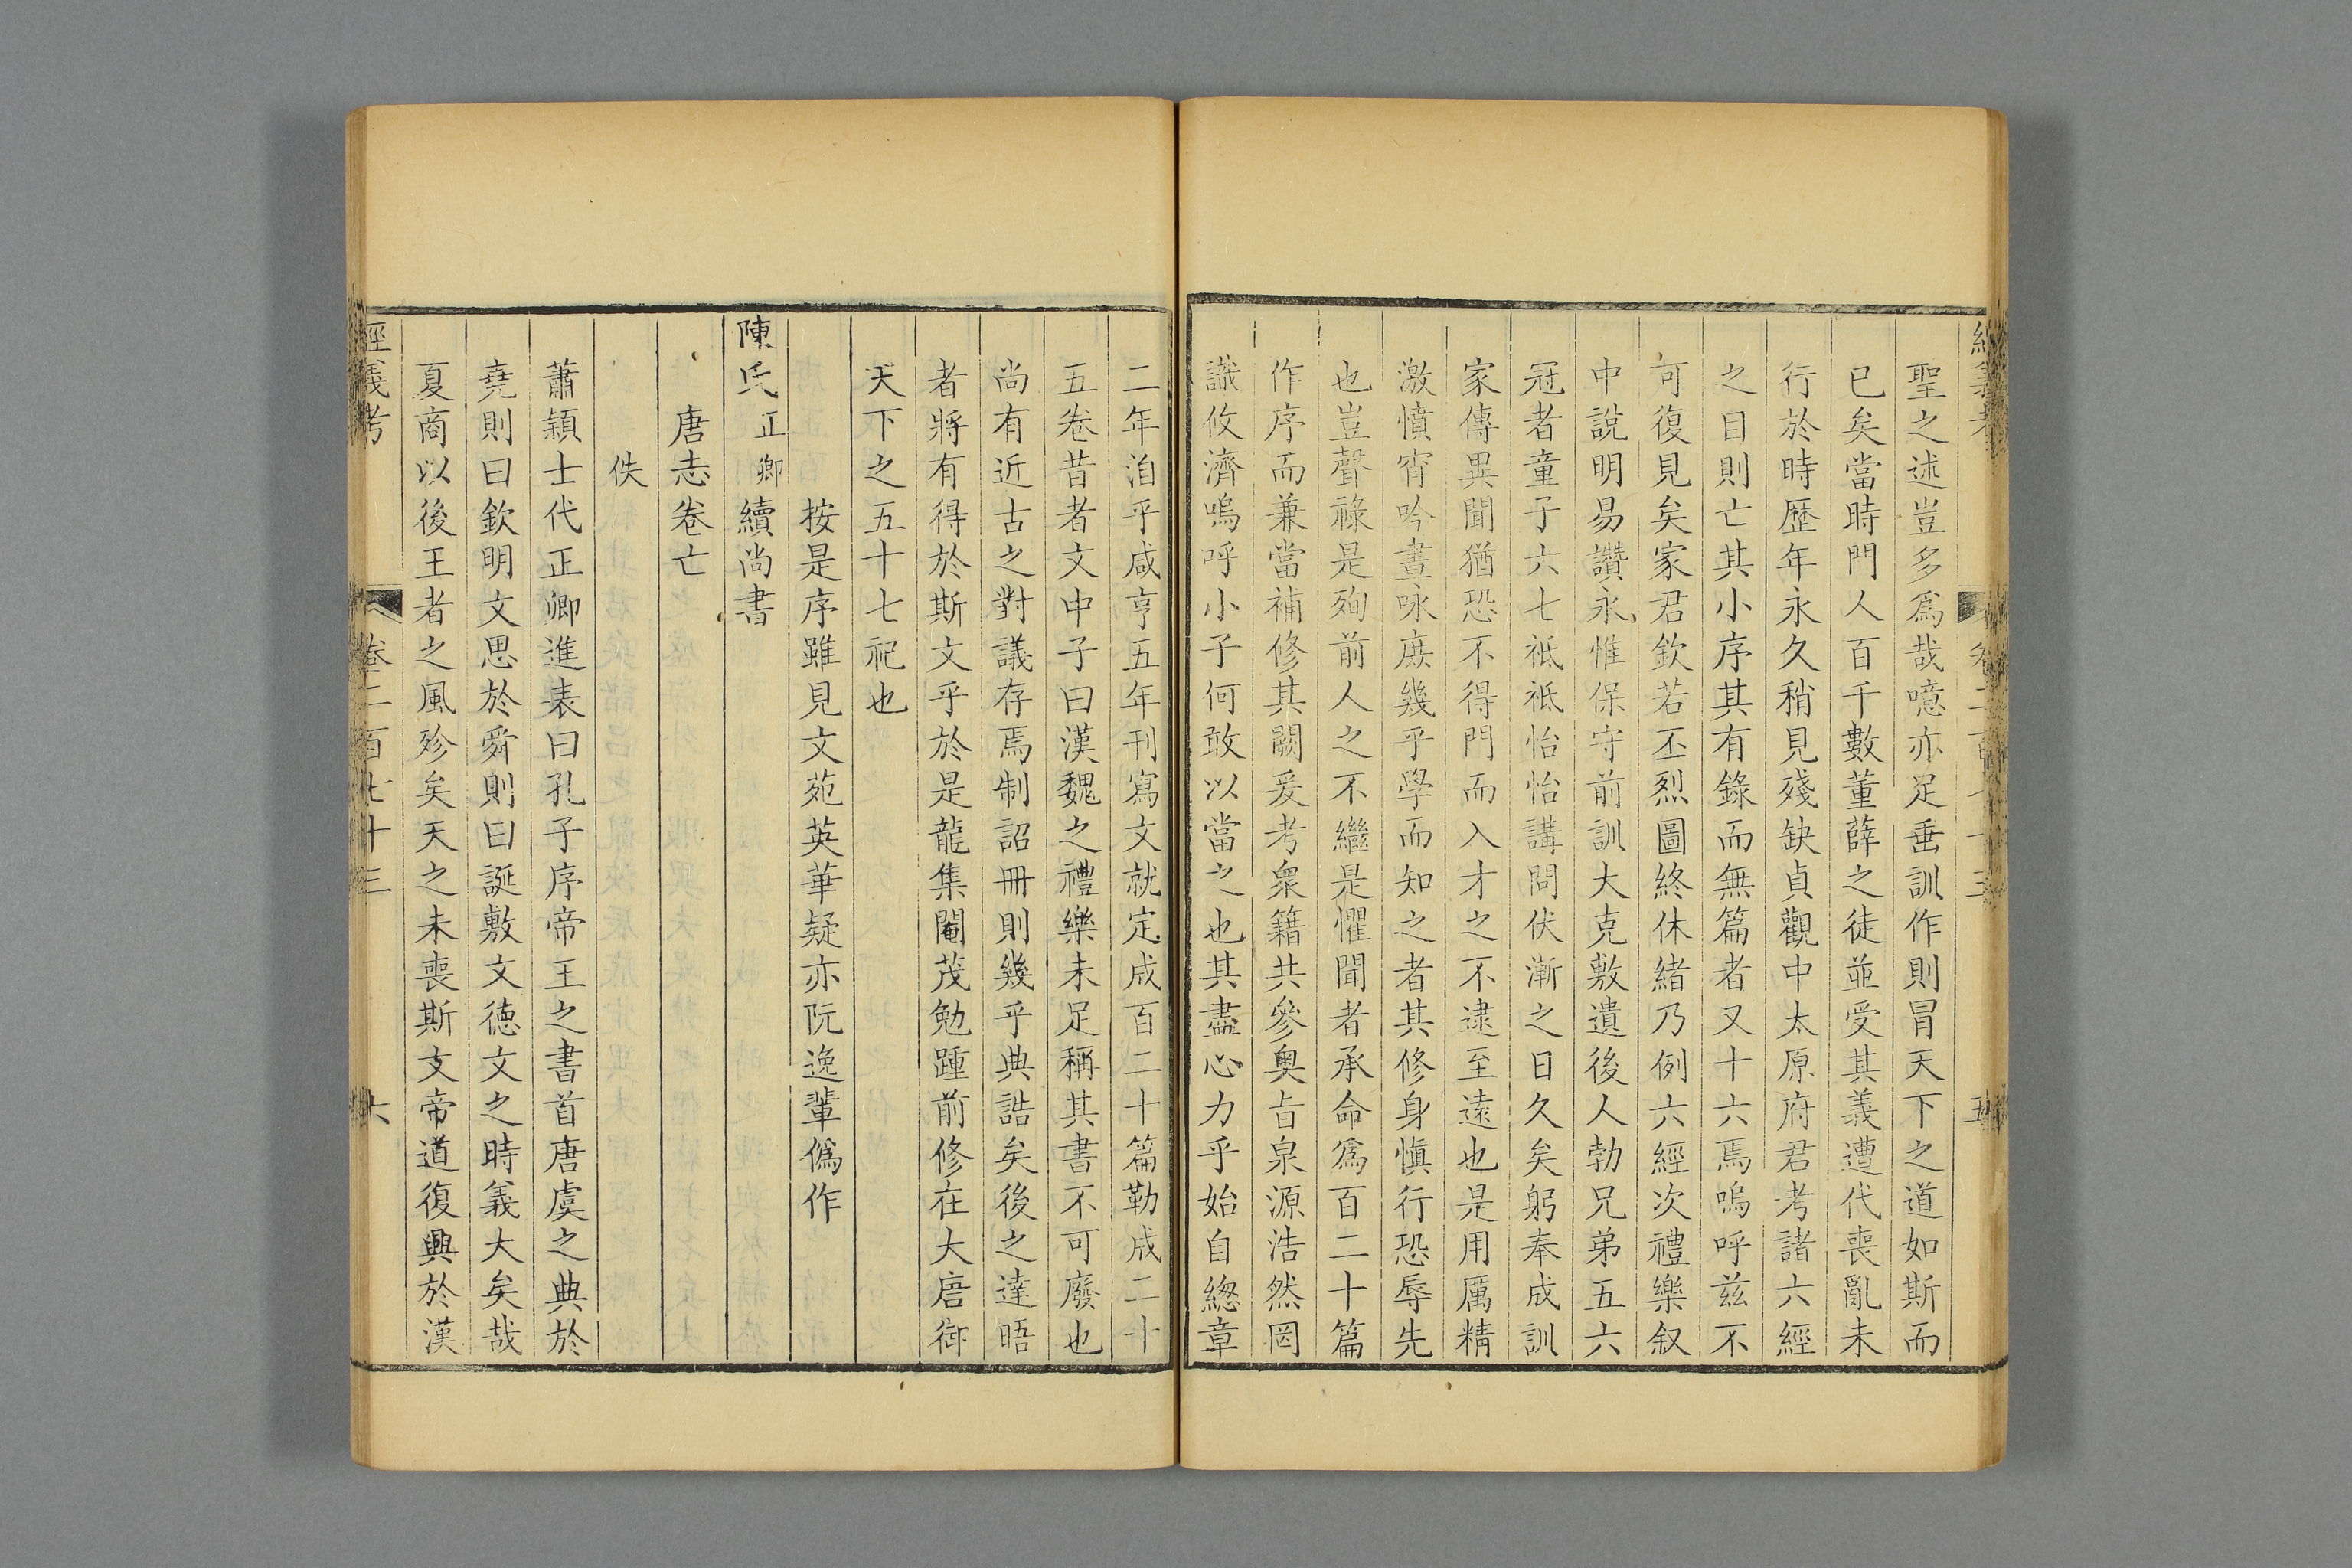 聖之述豈多爲哉噫亦足垂訓作則冒天下之道如斯而
已矣當時門人百千數董薛之徒並受其義遭代喪亂未
行於時歷年永久稍見殘缺貞觀中太原府君考諸六經
之目則亡其小序其有錄而無篇者又十六焉嗚呼茲不
可復見矣家君欽若丕烈圖終休緒乃例六經次禮樂叙
中說明易讚永惟保守前訓大克敷遺後人勃兄弟五六
冠者童子六七祗祗怡怡講問伏漸之日久矣躬奉成訓
家傳異聞猶恐不得門而入才之不逮至遠也是用厲精
激憤宵吟晝咏庶幾乎學而知之者其修身愼行恐辱先
也豈聲祿是殉前人之不繼是懼聞者承命爲百二十篇
作序而兼當補修其闕爰考衆籍共參奥旨泉源浩然罔
識攸濟嗚呼小子何敢以當之也其盡心力乎始自總章
二年洎乎咸亨五年刊寫文就定成百二十篇勒成二十
五卷昔者文中子曰漢魏之禮樂未足稱其書不可廢也
尚有近古之對議存焉制詔冊則幾乎典誥矣後之達晤
者將有得於斯文乎於是龍集閹茂勉踵前修在大唐御
天下之五十七祀也
按是序雖見文苑英華疑亦阮逸輩僞作
陳氏正卿續尚書
唐志卷亡
佚
蕭潁士代正卿進表曰孔子序帝王之書首唐虞之典於
堯則曰欽明文思於舜則曰誕敷文德文之時義大矣哉
夏商以後王者之風殄矣天之未喪斯文帝道復興於漢
經義考 卷二百七十三 六